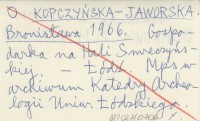 KOPCZYŃSKA-JAWORSKA
Bronisława 1966. Gospo-
darka na Hali Smreczyńs-
kiej. - Łódź Mps w
archiwum Katedry Archeo-
logii Uniw. Łódzkiego.